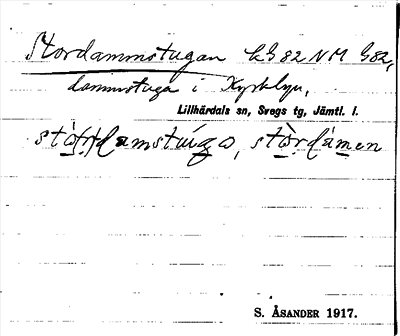 Stordammstugan kG82NM G82,
dammstuga i Kyrkbyn,
Lillhärdals sn, Svegs tg, Jämtl. l.
stòrdamstúgo, stòrdámen
S. ÅSANDER 1917.